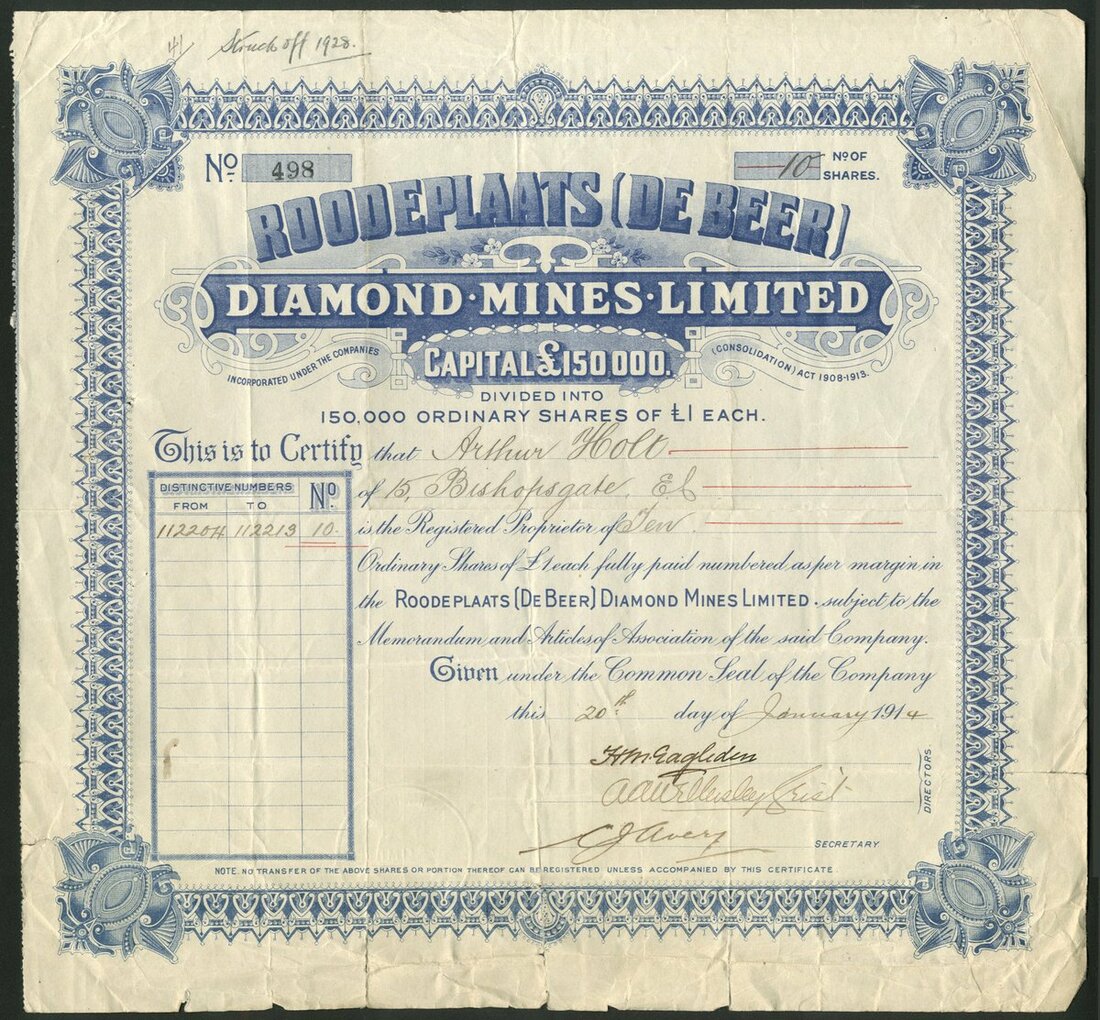 Struck off 1928.
No 498
10 No OF SHARES.
ROODEPLAATS (DE BEER)
DIAMOND·MINES·LIMITED
CAPITAL £150000.
INCORPORATED UNDER THE COMPANIES (CONSOLIDATION) ACT 1908-1913.
DIVIDED INTO
150,000 ORDINARY SHARES OF £1 EACH.
This is to Certify that Arthur Holt
of 15, Bishopsgate, EC
is the Registered Proprietor of Ten
Ordinary Shares of £1 each fully paid numbered as per margin in
the ROODEPLAATS (DE BEER) DIAMOND MINES LIMITED. subject to the
Memorandum and Articles of Association of the said Company.
Given under the Common Seal of the Company
this 20th day of January 1914
DISTINCTIVE NUMBERS No
FROM TO
112204 112213 10
DIRECTORS.
C J Avery
SECRETARY
NOTE. NO TRANSFER OF THE ABOVE SHARES OR PORTION THEREOF CAN BE REGISTERED UNLESS ACCOMPANIED BY THIS CERTIFICATE.